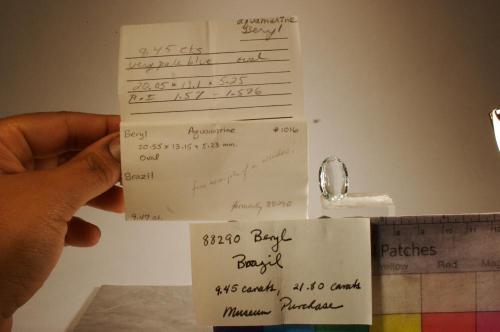 aquamarine
Beryl
9.45 cts
very pale blue oval
20.05 x 13.1 x 5.25
R.I. 1.57 - 1.576
Beryl Aquamarine #1016
20.55 x 13.15 x 5.23 mm.
Oval
Brazil
fine example of a window.
formerly 88290
9.47 ct.
88290 Beryl
Brazil
9.45 carats, 21.80 carats
Museum Purchase
Patches
Yellow Red Mag